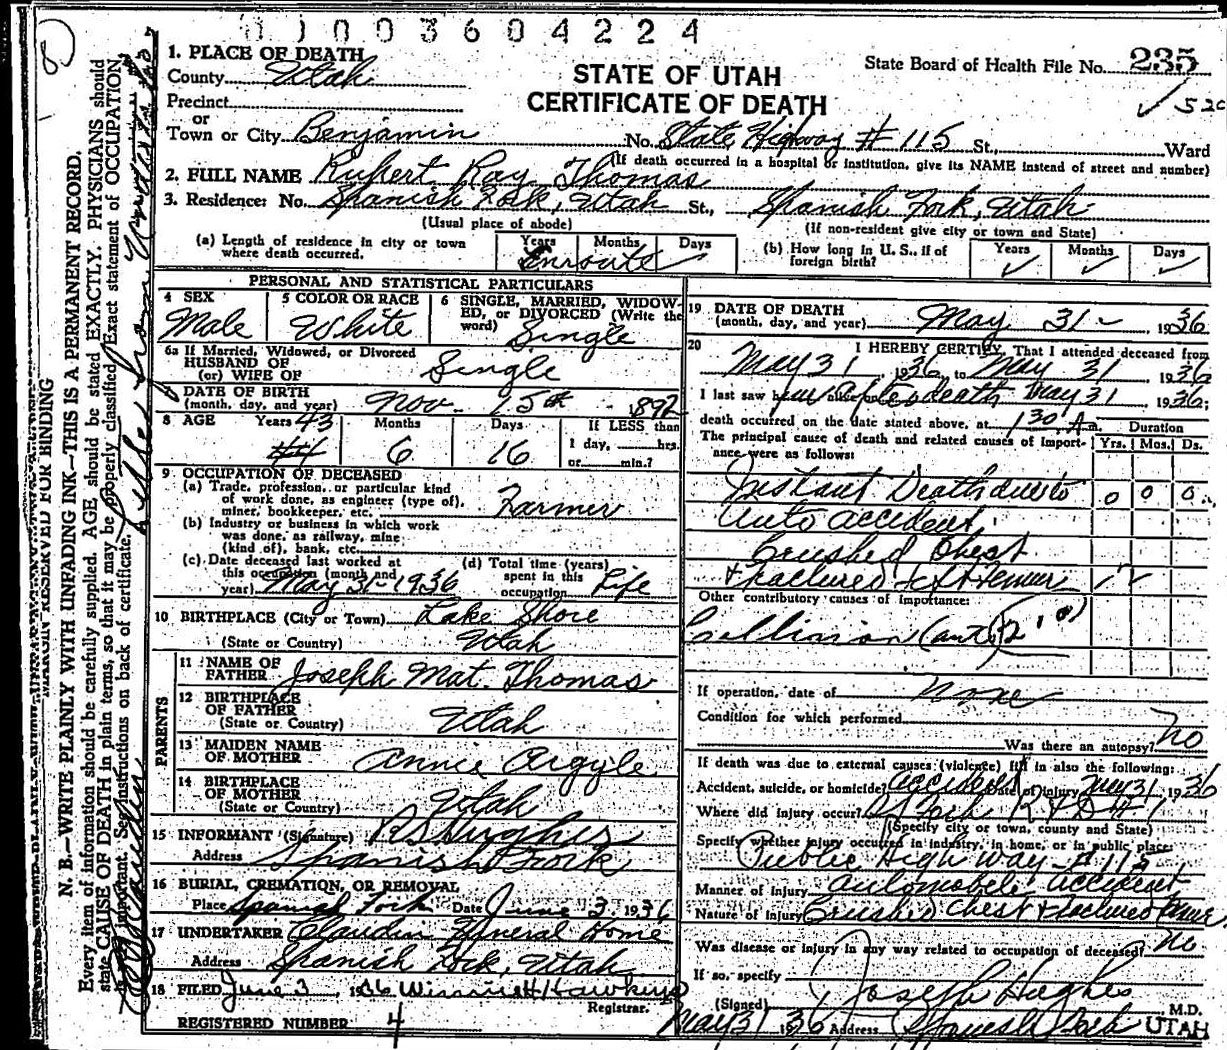 1003604224
1. PLACE OF DEATH
County Utah
STATE OF UTAH
CERTIFICATE OF DEATH
State Board of Health File No. 235
Precinct
or
Town or City Benjamin No. State Highway # 115 St., Ward
(If death occurred in a hospital or institution, give its NAME instead of street and number)
2. FULL NAME Rupert Ray Thomas
3. Residence: No. Spanish Fork, Utah St., Spanish Fork, Utah
(Usual place of abode) (If non-resident give city or town and State)
(a) Length of residence in city or town where death occurred. Years Months Days Enroute
(b) How long in U. S., if of foreign birth? Years Months Days
PERSONAL AND STATISTICAL PARTICULARS
4 SEX Male
5 COLOR OR RACE White
6 SINGLE, MARRIED, WIDOWED, or DIVORCED (Write the word) Single
6a If Married, Widowed, or Divorced
HUSBAND OF
(or) WIFE OF Single
7 DATE OF BIRTH
(month, day, and year) Nov. 15th 1892
8 AGE Years 43 Months 6 Days 16 If LESS than 1 day, hrs. or min.?
9 OCCUPATION OF DECEASED
(a) Trade, profession, or particular kind of work done, as engineer (type of), miner, bookkeeper, etc. Farmer
(b) Industry or business in which work was done, as railway, mine (kind of), bank, etc.
(c) Date deceased last worked at this occupation (month and year) May 31-1936
(d) Total time (years) spent in this occupation Life
10 BIRTHPLACE (City or Town) Lake Shore
(State or Country) Utah
PARENTS
11 NAME OF FATHER Joseph Mat. Thomas
12 BIRTHPLACE OF FATHER
(State or Country) Utah
13 MAIDEN NAME OF MOTHER Annie Argyle
14 BIRTHPLACE OF MOTHER
(State or Country) Utah
15 INFORMANT (Signature) R S Hughes
Address Spanish Fork
16 BURIAL, CREMATION, OR REMOVAL
Place Spanish Fork Date June 3, 1936
17 UNDERTAKER Claudin Funeral Home
Address Spanish Fork, Utah
18 FILED June 3, 1936 Winnie H Hawkins
Registrar.
REGISTERED NUMBER 4
19 DATE OF DEATH
(month, day, and year) May 31 - 1936
20 I HEREBY CERTIFY, That I attended deceased from
May 31, 1936, to May 31 1936
I last saw h after death May 31 1936;
death occurred on the date stated above, at 1 30 A m. Duration
The principal cause of death and related causes of importance were as follows: Yrs. Mos. Ds.
Instant Death due to 0 0 0
Auto accident
Crushed Chest
+ fractured left femur
Other contributory causes of importance:
Collision (auto
If operation, date of None
Condition for which performed
Was there an autopsy? No
If death was due to external causes (violence) fill in also the following:
Accident, suicide, or homicide? accident Date of injury May 31 1936
Where did injury occur? Fork
(Specify city or town, county and State)
Specify whether injury occurred in industry, in home, or in public place:
Public High way - # 115
Manner of injury Automobile accident
Nature of injury Crushed chest + fractured femur
Was disease or injury in any way related to occupation of deceased? No
If so, specify
(Signed) Joseph Hughes M.D.
May 31 1936 Address Spanish Fork UTAH
MARGIN RESERVED FOR BINDING
N. B.—WRITE PLAINLY WITH UNFADING INK—THIS IS A PERMANENT RECORD.
Every item of information should be carefully supplied. AGE should be stated EXACTLY. PHYSICIANS should
state CAUSE OF DEATH in plain terms, so that it may be properly classified. Exact statement of OCCUPATION
important. See instructions on back of certificate.